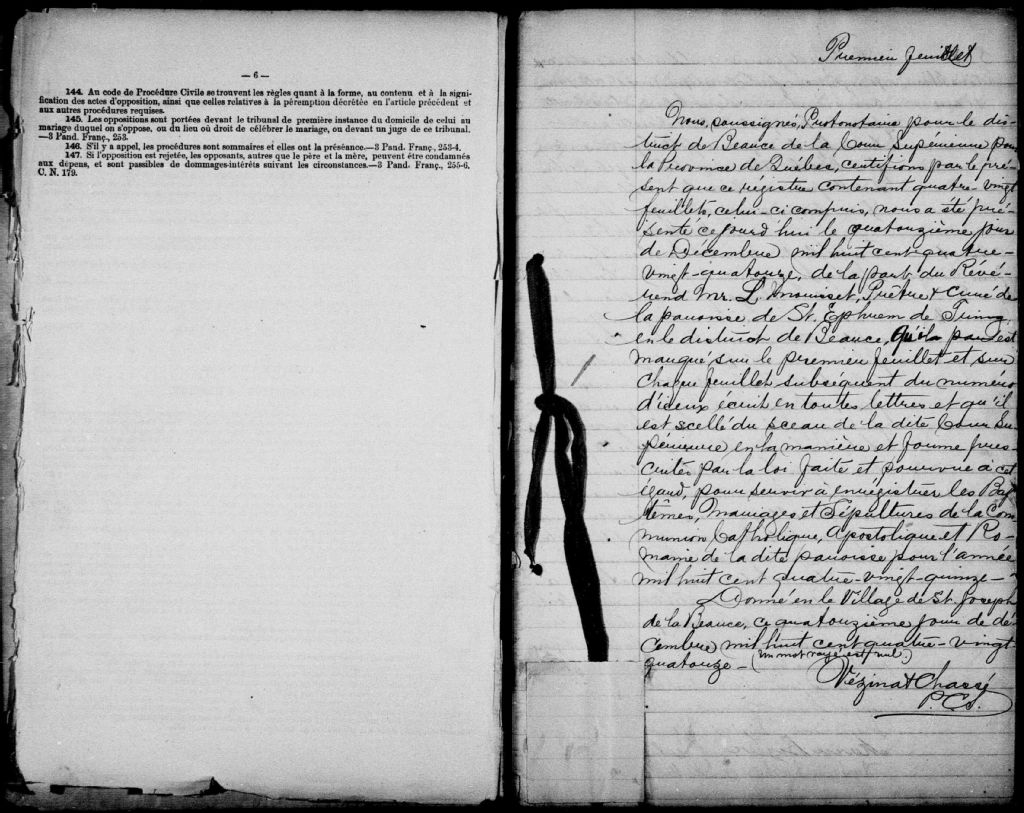 — 6 —
144. Au code de Procédure Civile se trouvent les règles quant à la forme, au contenu et à la signi-
fication des actes d'opposition, ainsi que celles relatives à la péremption décrétée en l'article précédent et
aux autres procédures requises.
145. Les oppositions sont portées devant le tribunal de première instance du domicile de celui au
mariage duquel on s'oppose, ou du lieu où droit de célébrer le mariage, ou devant un juge de ce tribunal.
—3 Pand. Franç., 253.
146. S'il y a appel, les procédures sont sommaires et elles ont la préséance.—3 Pand. Franç., 253-4.
147. Si l'opposition est rejetée, les opposants, autres que le père et la mère, peuvent être condamnés
aux dépens, et sont passibles de dommages-intérêts suivant les circonstances.—3 Pand. Franç., 255-6.
C. N. 179.
Premier feuillet
Nous, soussignés, Protonotaire pour le dis-
trict de Beauce de la Cour Supérieure pour
la Province de Québec, certifions par le pré-
sent que ce régistre contenant quatre-vingt
feuillets, celui-ci compris, nous a été pré-
senté ce jourd'hui le quatorzième jour
de Décembre mil huit cent quatre-
vingt-quatorze, de la part du Révé-
rend Mr. L. Prêtre & Curé de
la paroisse de St. Ephrem de Tring
en le district de Beauce, qu'il est
marqué sur le premier feuillet et sur
chaque feuillet subséquent du numéro
d'iceux écrit en toutes lettres et qu'il
est scellé du sceau de la dite Cour Su-
périeure en la manière et forme pres-
crites par la loi faite et pourvue à cet
égard, pour servir à enrégistrer les Bap-
têmes, Mariages et Sépultures de la Com-
munion Catholique, Apostolique et Ro-
maine de la dite paroisse pour l'année
mil huit cent quatre-vingt-quinze —
Donné en le Village de St. Joseph
de la Beauce, ce quatorzième jour de dé-
cembre mil huit cent quatre-vingt
quatorze — (Un mot rayé est nul.)
Vézina & Chassé
P.C.S.